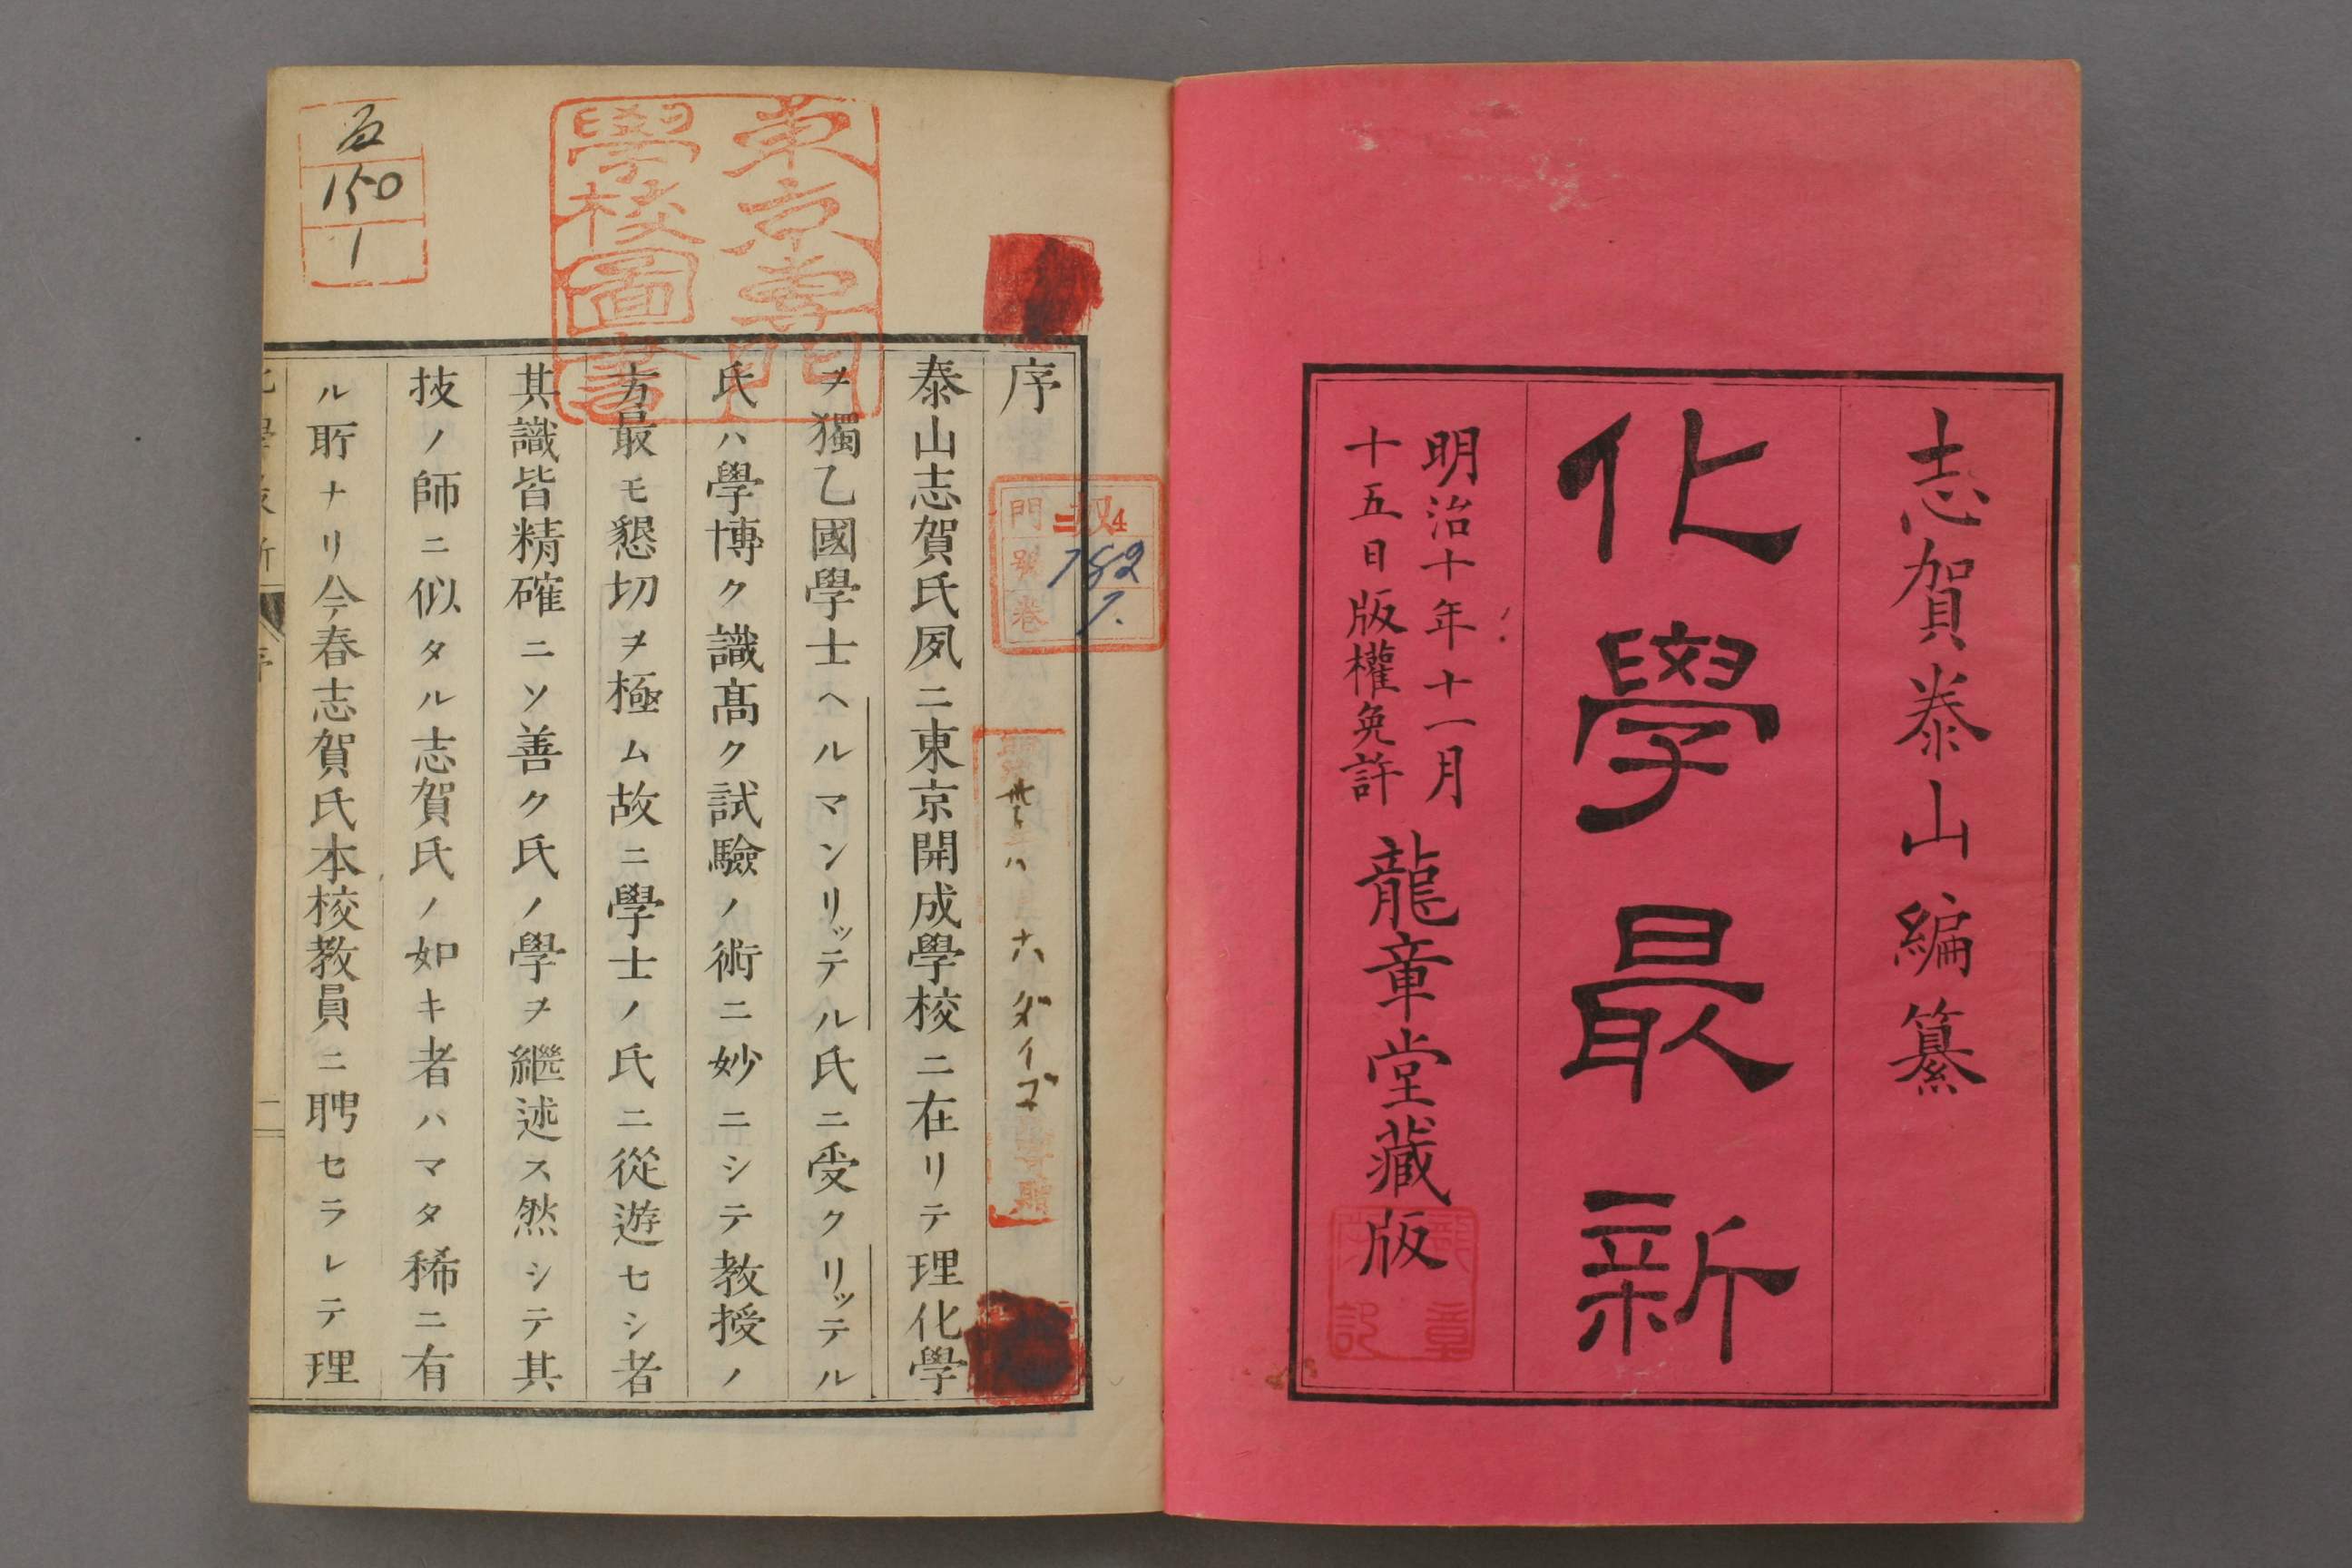 志賀泰山編纂
化學最新
明治十年十一月
十五日版權免許
龍章堂藏版
龍章
記
序
泰山志賀氏夙ニ東京開成學校ニ在リテ理化學
ヲ獨乙國學士ヘルマンリッテル氏ニ受クリッテル
氏ハ學博ク識髙ク試驗ノ術ニ妙ニシテ教授ノ
方最モ懇切ヲ極ム故ニ學士ノ氏ニ從遊セシ者
其識皆精確ニソ善ク氏ノ學ヲ繼述ス然シテ其
技ノ師ニ似タル志賀氏ノ如キ者ハマタ稀ニ有
ル所ナリ今春志賀氏本校教員ニ聘セラレテ理
東京専門
學校圖書
門
号
卷
ニ 4
782
1.
150
1